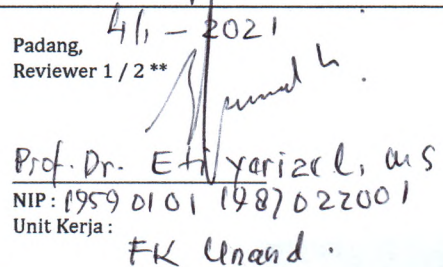 4/1 - 2021
Padang,
Reviewer 1 / 2 **
Prof. Dr. Eti Yerizel, MS
NIP : 19590101 1987022001
Unit Kerja :
FK Unand.